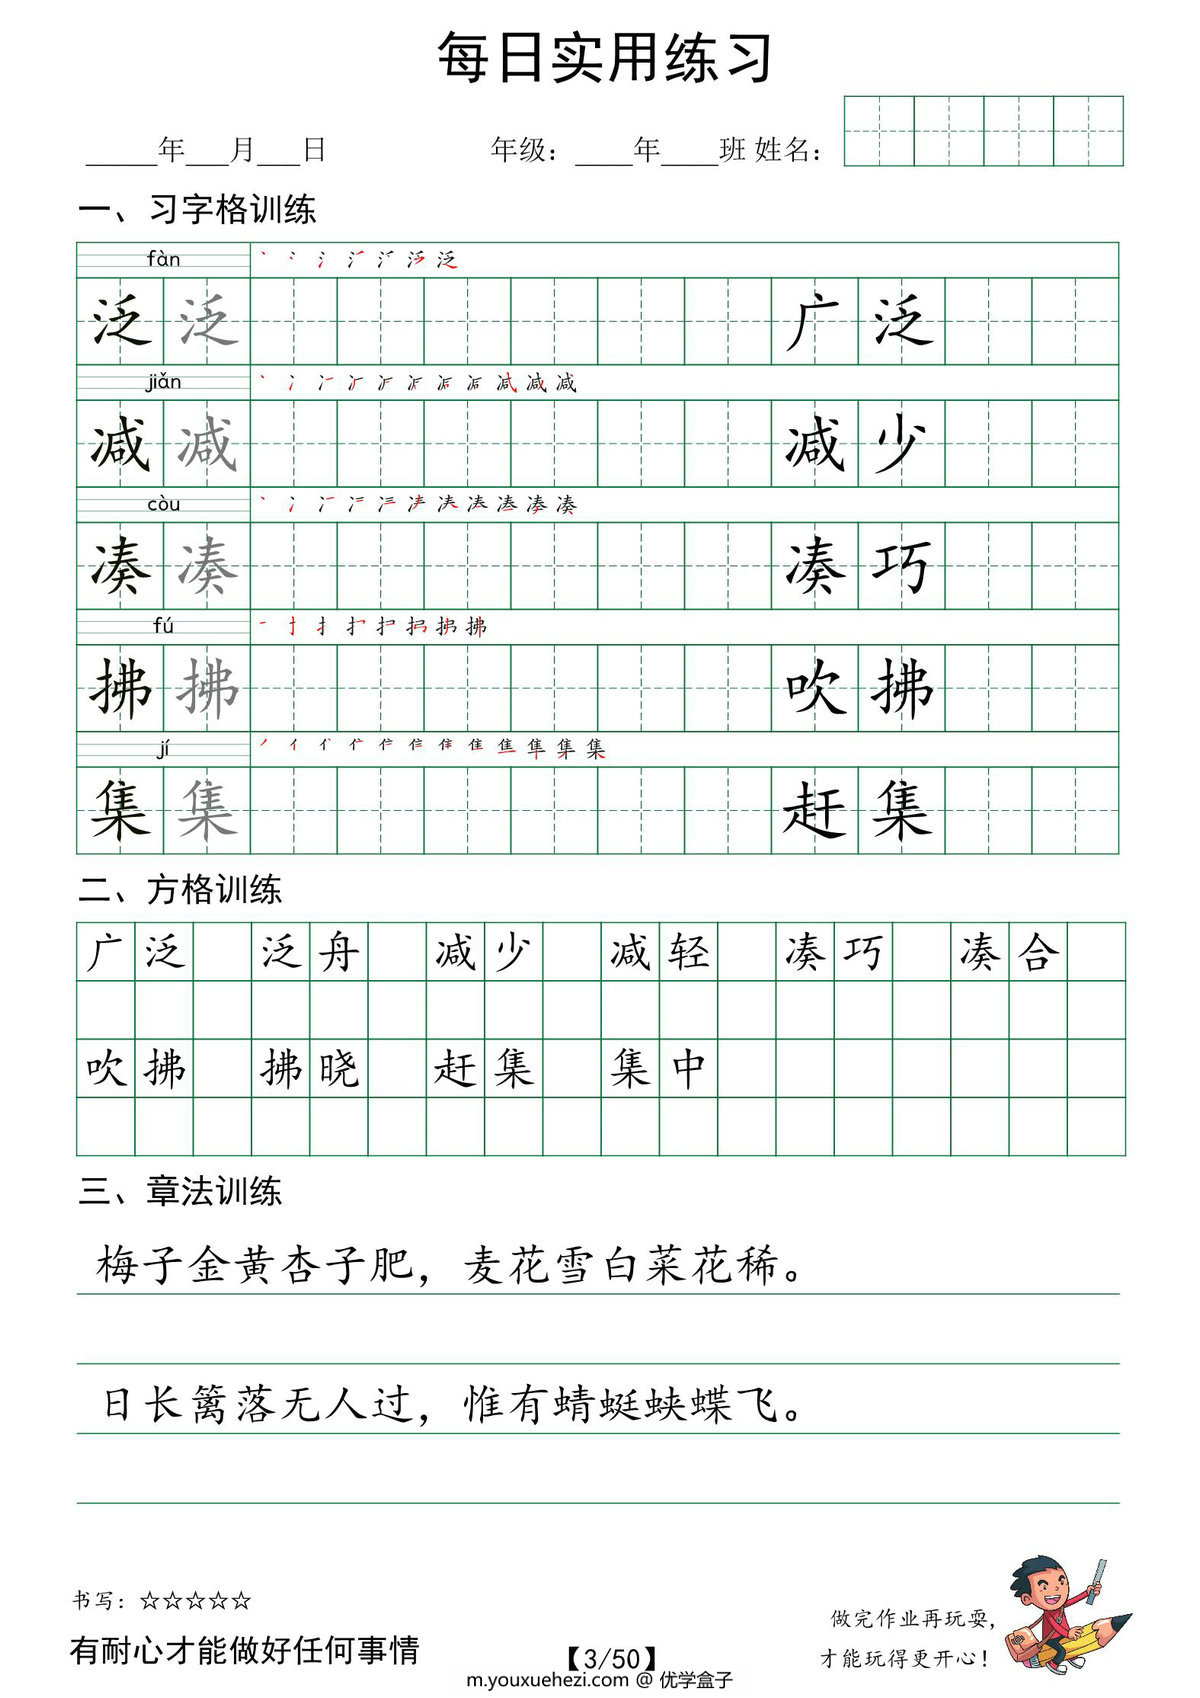 每日实用练习
_____年___月___日 年级：____年____班 姓名：
一、习字格训练
fàn
泛 泛 广 泛
jiǎn
减 减 减 少
còu
凑 凑 凑 巧
fú
拂 拂 吹 拂
jí
集 集 赶 集
二、方格训练
广泛 泛舟 减少 减轻 凑巧 凑合
吹拂 拂晓 赶集 集中
三、章法训练
梅子金黄杏子肥，麦花雪白菜花稀。
日长篱落无人过，惟有蜻蜓蛱蝶飞。
书写：☆☆☆☆☆
做完作业再玩耍，
才能玩得更开心！
有耐心才能做好任何事情
【3/50】
m.youxuehezi.com @ 优学盒子